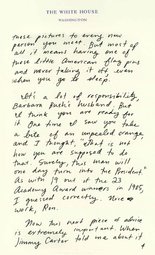 THE WHITE HOUSE
WASHINGTON
those pictures to every new
person you meet. But most of
all it means having one of
those little American flag pins
and never taking it off even
when you go to sleep.
It's a lot of responsibility,
Barbara Bush's husband, But
I think you are ready for
it. One time I saw you take
a bite of an unpeeled orange,
and I thought, "that is not
how you are supposed to do
that. Surely, this man will
one day turn into the President"
As with 19 out of the 23
Academy Award winners in 1985,
I guessed correctly. Nice
work, Ron.
Now this next piece of advice
is extremely important. When
Jimmy Carter told me about it